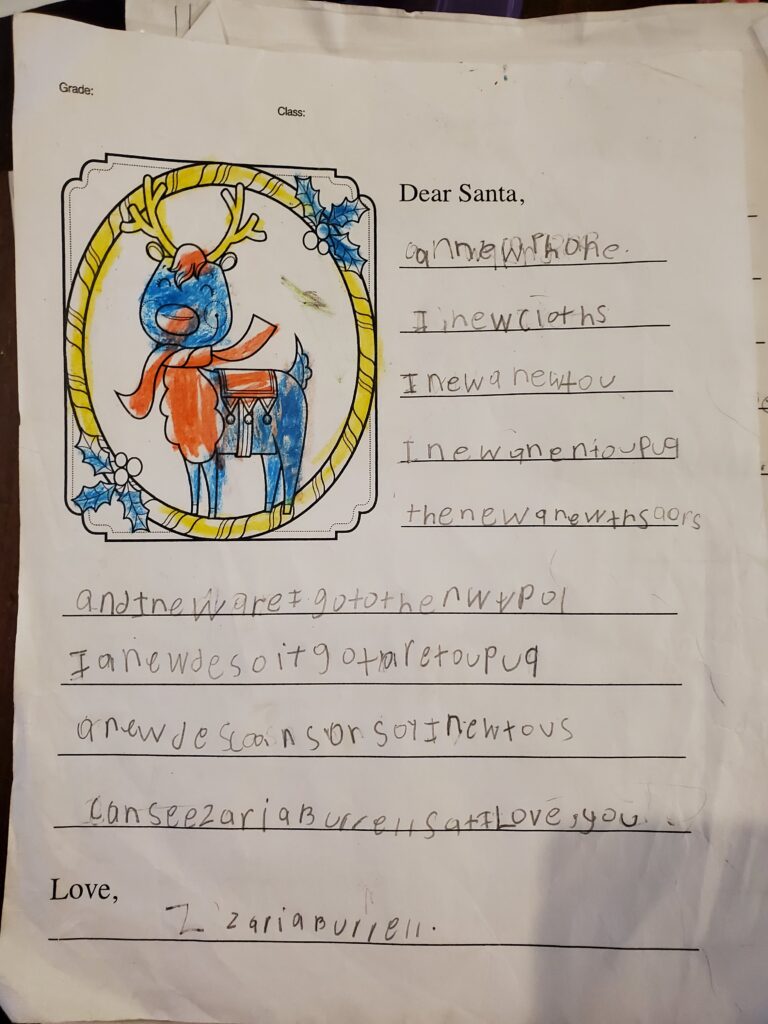 Grade:
Class:
Dear Santa,
can newPhone.
I newcloths
I newa newtou
I newanentoupug
thenewanewthsaors
andInewareIgotothenwtpol
Ianewdesoitgotaretoupug
anewdes onsoyInewtous
canseezariaBurrellsatILove,you.
Love,
Z zariaBurrell.